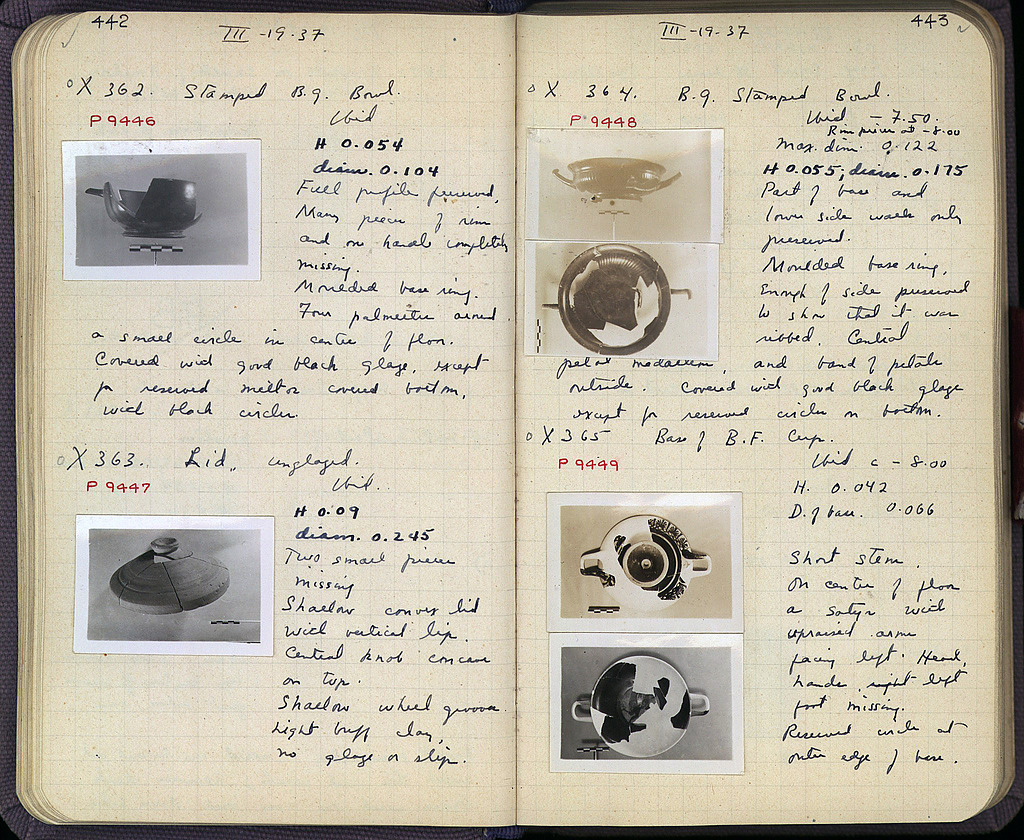 442
III -19-37
X 362. Stamped B.g. Bowl.
P 9446
Ibid
H 0.054
diam. 0.104
Full profile preserved,
Many pieces of rim
and one handle completely
missing.
Moulded base ring.
Four palmettes around
a small circle in centre of floor.
Covered with good black glaze, except
for reserved bottom,
with black circles.
X 363. Lid, unglazed.
P 9447
Ibid.
H 0.09
diam. 0.245
Two small pieces
missing
Shallow convex lid
with vertical lip.
Central knob concave
on top.
Shallow wheel grooves.
Light buff clay,
no glaze or slip.
443
III -19-37
X 364. B.g. Stamped Bowl.
P 9448
Ibid - 7.50.
Rim pieces at -8.00
Max. dim. 0.122
H 0.055, diam. 0.175
Part of base and
lower side walls only
preserved.
Moulded base ring,
Enough of side preserved
to show that it was
ribbed. Central
petal medallion, and band of petals
outside. Covered with good black glaze
except for reserved circle on bottom.
X 365 Base of B.F. Cup.
P 9449
Ibid c - 8.00
H. 0.042
D. of base. 0.066
Short stem.
On centre of floor
a satyr with
upraised arms
facing left. Head,
hands, right left
foot missing.
Reserved circle at
outer edge of base.